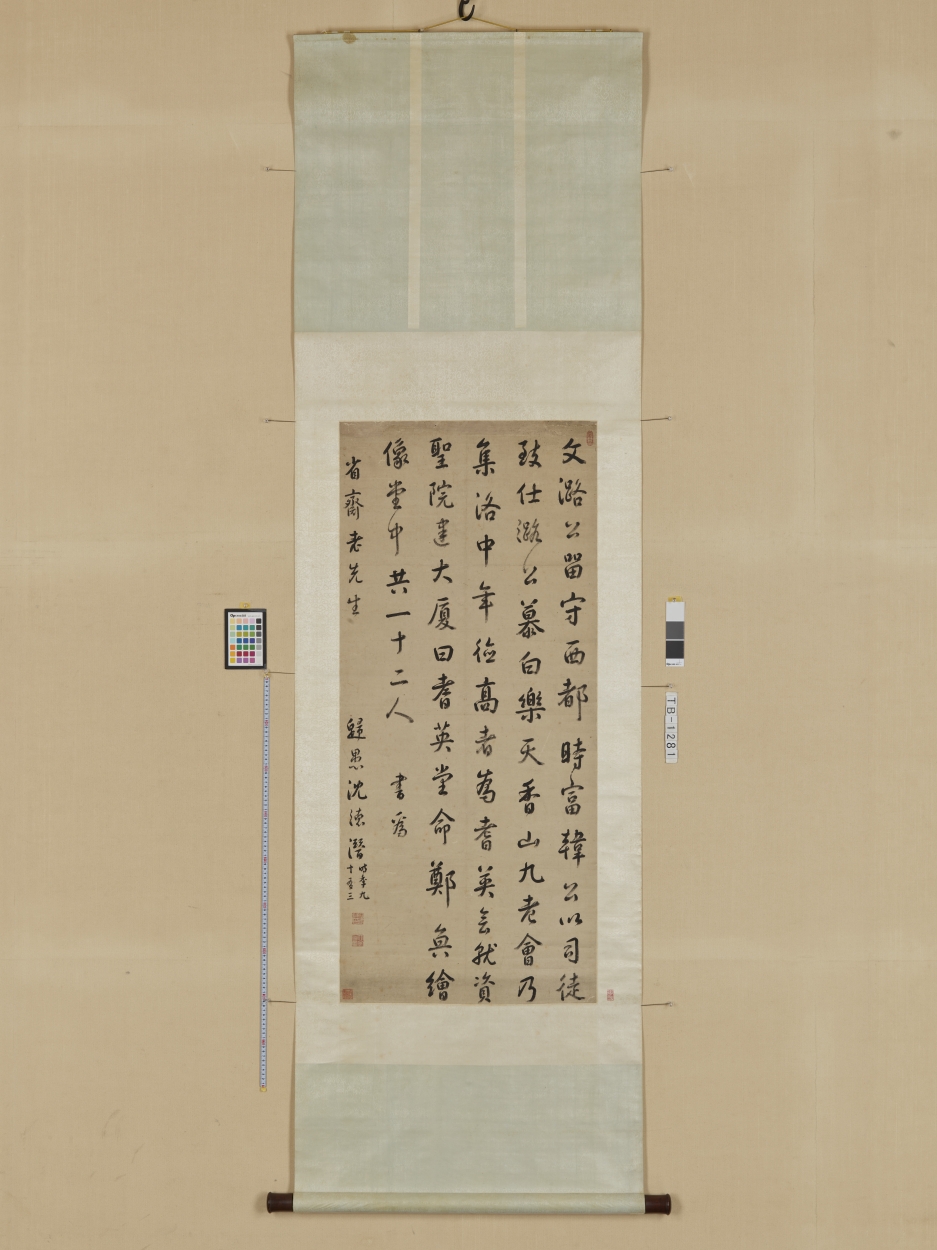 文潞公留守西都時富韓公以司徒
致仕潞公慕白樂天香山九老會乃
集洛中年德高者為耆英會就資
聖院建大廈曰耆英堂命鄭奐繪
像堂中共一十二人 書為
省齋老先生 歸愚沈德潛時年九
十有三
TB-1281